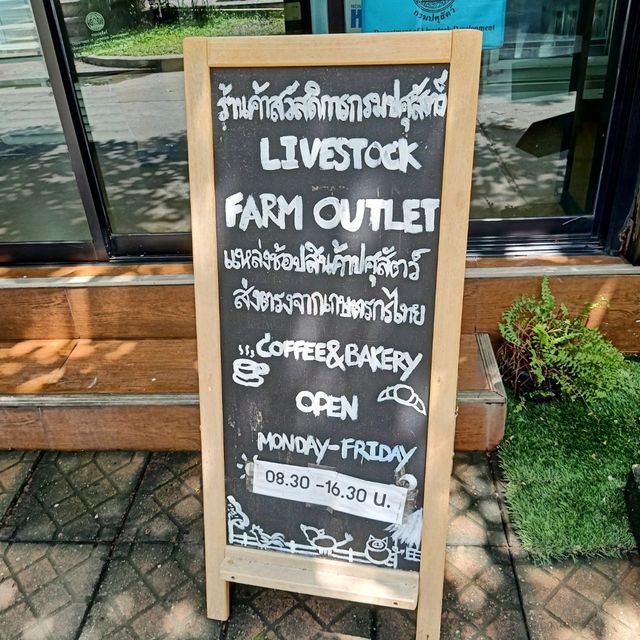 กรมปศุสัตว์
Department of Livestock Development
ร้านค้าสวัสดิการกรมปศุสัตว์
LIVESTOCK
FARM OUTLET
แหล่งช้อปสินค้าปศุสัตว์
ส่งตรงจากเกษตรกรไทย
COFFEE&BAKERY
OPEN
MONDAY-FRIDAY
08.30 -16.30 น.